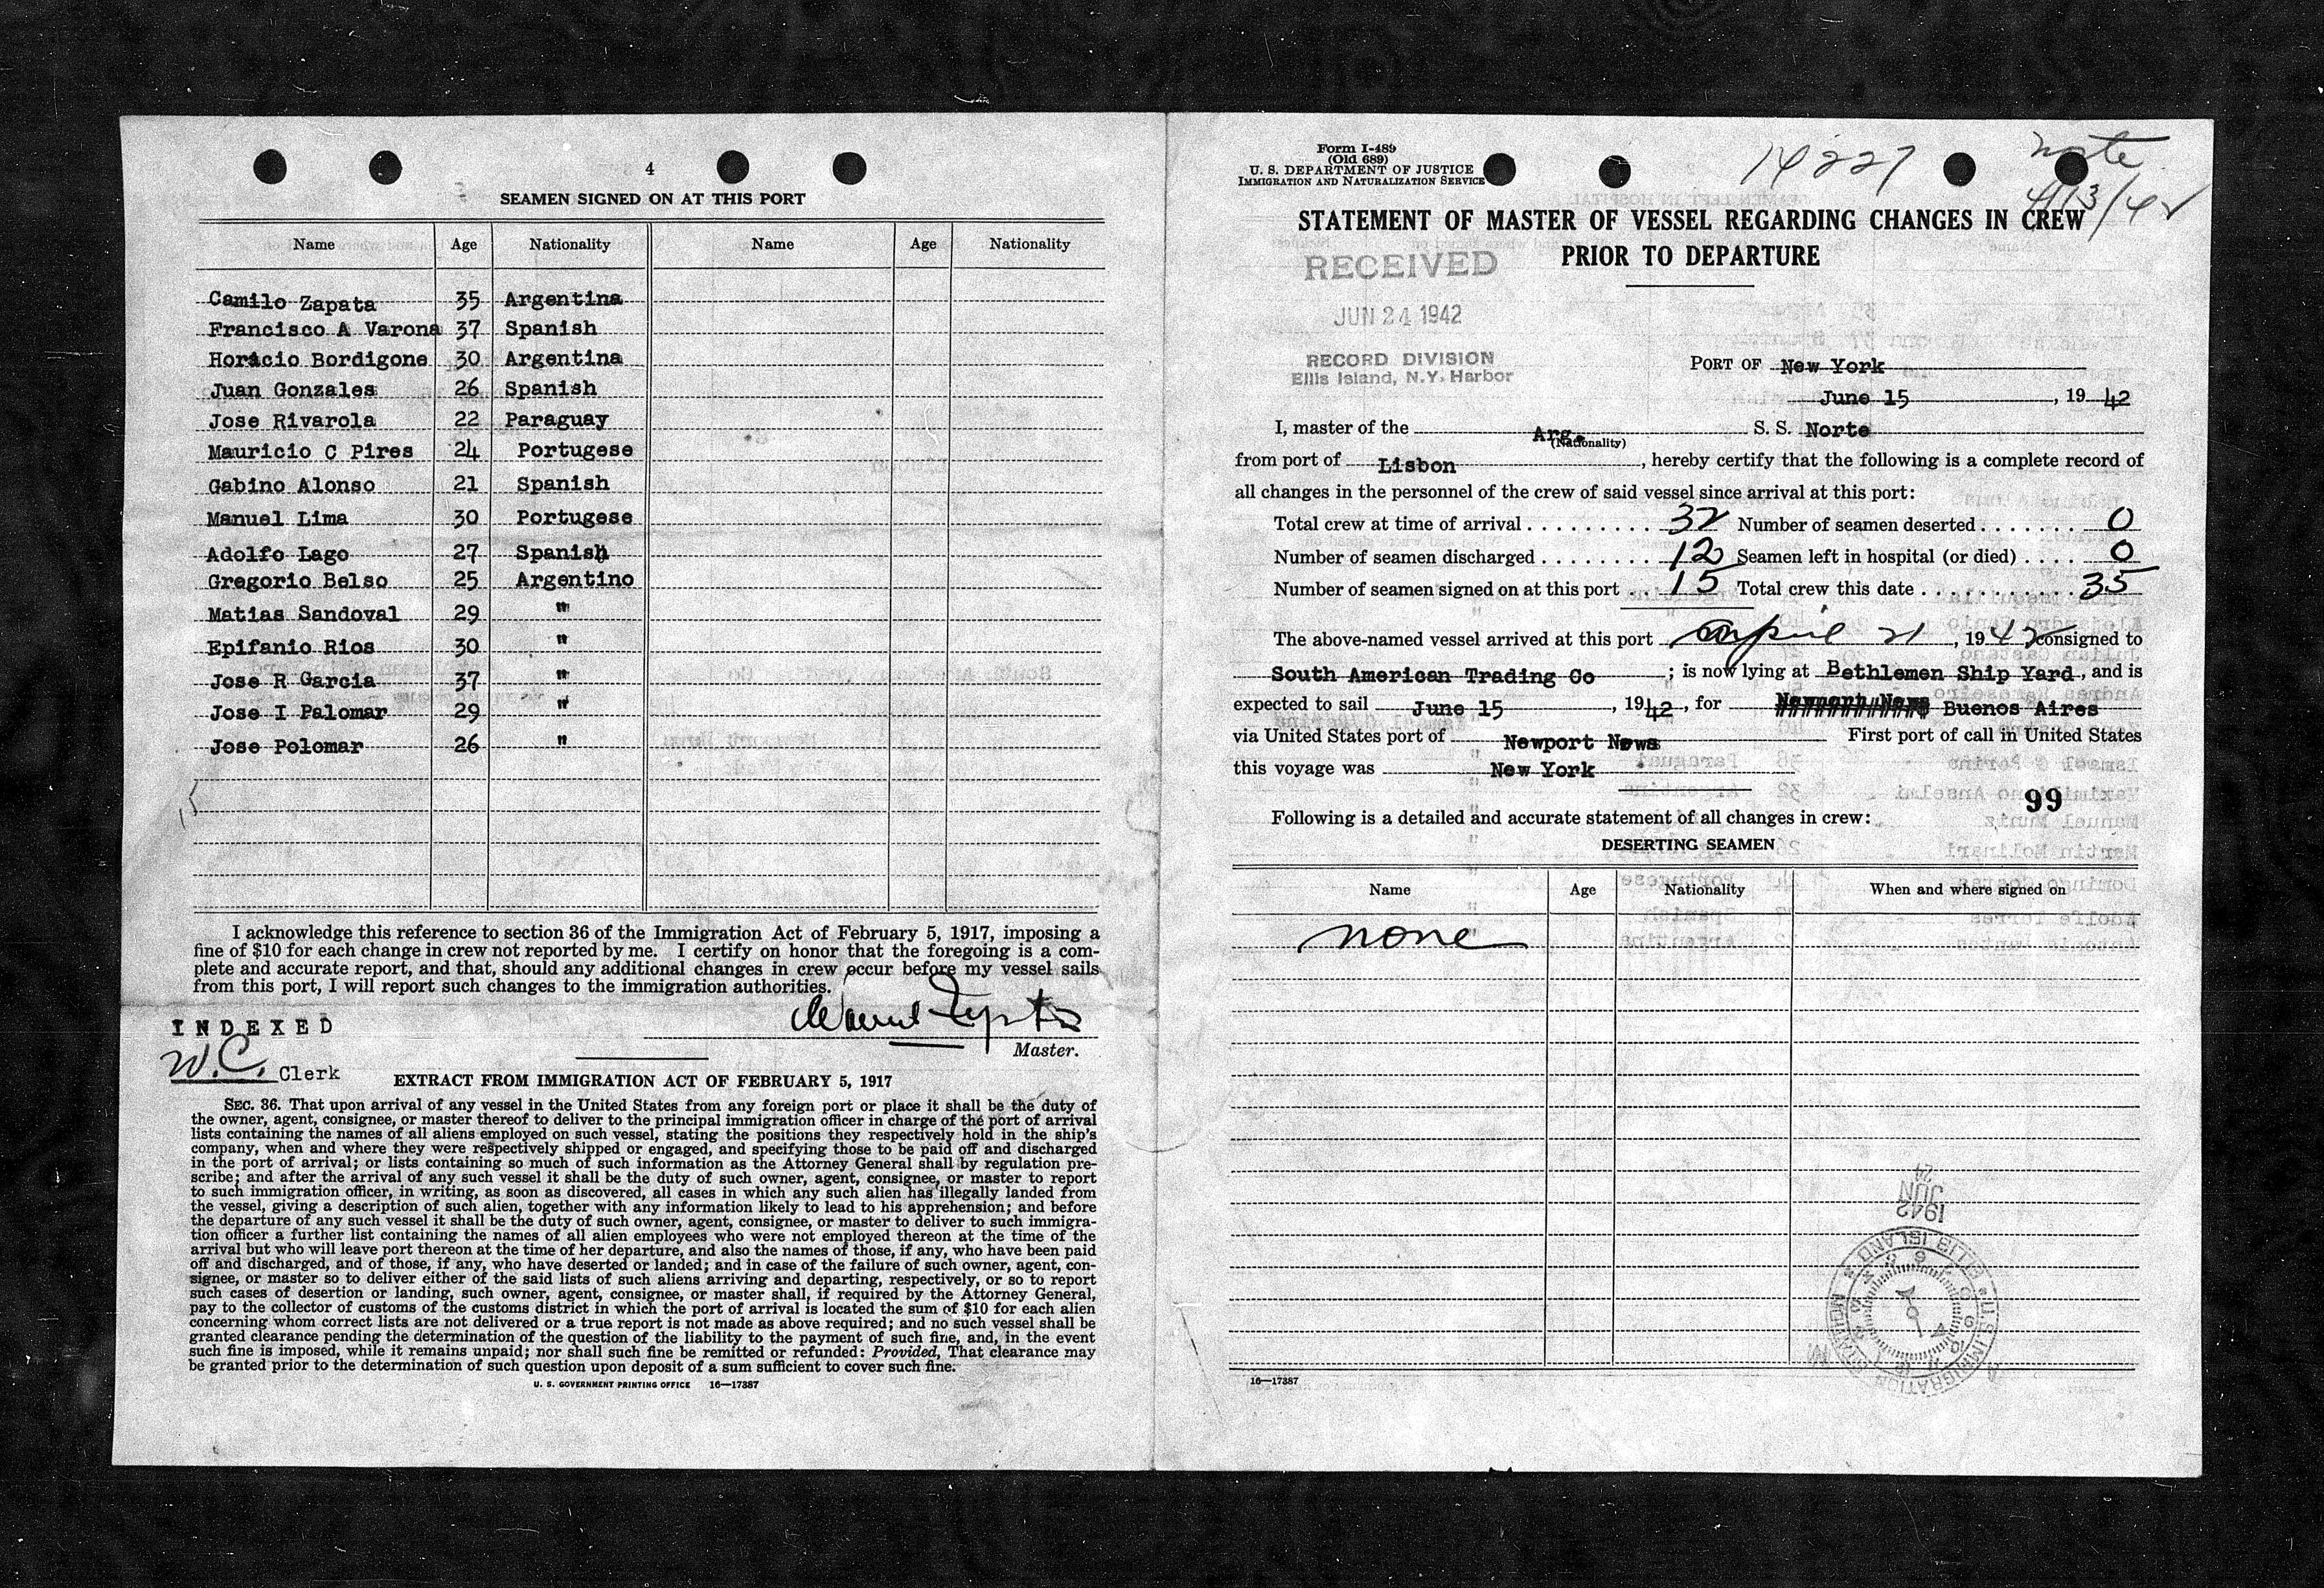 4
SEAMEN SIGNED ON AT THIS PORT
Name Age Nationality Name Age Nationality
Camilo Zapata 35 Argentina
Francisco A Varona 37 Spanish
Horacio Bordigone 30 Argentina
Juan Gonzales 26 Spanish
Jose Rivarola 22 Paraguay
Mauricio C Pires 24 Portugese
Gabino Alonso 21 Spanish
Manuel Lima 30 Portugese
Adolfo Lago 27 Spanish
Gregorio Belso 25 Argentino
Matias Sandoval 29 "
Epifanio Rios 30 "
Jose R Garcia 37 "
Jose I Palomar 29 "
Jose Polomar 26 "
15
I acknowledge this reference to section 36 of the Immigration Act of February 5, 1917, imposing a
fine of $10 for each change in crew not reported by me. I certify on honor that the foregoing is a com-
plete and accurate report, and that, should any additional changes in crew occur before my vessel sails
from this port, I will report such changes to the immigration authorities.
INDEXED
Master.
W.C. Clerk
EXTRACT FROM IMMIGRATION ACT OF FEBRUARY 5, 1917
SEC. 36. That upon arrival of any vessel in the United States from any foreign port or place it shall be the duty of
the owner, agent, consignee, or master thereof to deliver to the principal immigration officer in charge of the port of arrival
lists containing the names of all aliens employed on such vessel, stating the positions they respectively hold in the ship's
company, when and where they were respectively shipped or engaged, and specifying those to be paid off and discharged
in the port of arrival; or lists containing so much of such information as the Attorney General shall by regulation pre-
scribe; and after the arrival of any such vessel it shall be the duty of such owner, agent, consignee, or master to report
to such immigration officer, in writing, as soon as discovered, all cases in which any such alien has illegally landed from
the vessel, giving a description of such alien, together with any information likely to lead to his apprehension; and before
the departure of any such vessel it shall be the duty of such owner, agent, consignee, or master to deliver to such immigra-
tion officer a further list containing the names of all alien employees who were not employed thereon at the time of the
arrival but who will leave port thereon at the time of her departure, and also the names of those, if any, who have been paid
off and discharged, and of those, if any, who have deserted or landed; and in case of the failure of such owner, agent, con-
signee, or master so to deliver either of the said lists of such aliens arriving and departing, respectively, or so to report
such cases of desertion or landing, such owner, agent, consignee, or master shall, if required by the Attorney General,
pay to the collector of customs of the customs district in which the port of arrival is located the sum of $10 for each alien
concerning whom correct lists are not delivered or a true report is not made as above required; and no such vessel shall be
granted clearance pending the determination of the question of the liability to the payment of such fine, and, in the event
such fine is imposed, while it remains unpaid; nor shall such fine be remitted or refunded: Provided, That clearance may
be granted prior to the determination of such question upon deposit of a sum sufficient to cover such fine.
U. S. GOVERNMENT PRINTING OFFICE 16—17387
Form I-489
(Old 689)
U. S. DEPARTMENT OF JUSTICE
IMMIGRATION AND NATURALIZATION SERVICE
14227
note
4/13/42
STATEMENT OF MASTER OF VESSEL REGARDING CHANGES IN CREW
PRIOR TO DEPARTURE
RECEIVED
JUN 24 1942
RECORD DIVISION
Ellis Island, N.Y. Harbor
PORT OF New York
June 15, 1942
I, master of the Arg. S. S. Norte
(Nationality)
from port of Lisbon, hereby certify that the following is a complete record of
all changes in the personnel of the crew of said vessel since arrival at this port:
Total crew at time of arrival 32 Number of seamen deserted 0
Number of seamen discharged 12 Seamen left in hospital (or died) 0
Number of seamen signed on at this port 15 Total crew this date 35
The above-named vessel arrived at this port april 21, 1942 consigned to
South American Trading Co; is now lying at Bethlemen Ship Yard, and is
expected to sail June 15, 1942, for Newport News Buenos Aires
via United States port of Newport News First port of call in United States
this voyage was New York
99
Following is a detailed and accurate statement of all changes in crew:
DESERTING SEAMEN
Name Age Nationality When and where signed on
none
1942
JUN
24
U.S. IMMIGRATION
ELLIS ISLAND
16—17387